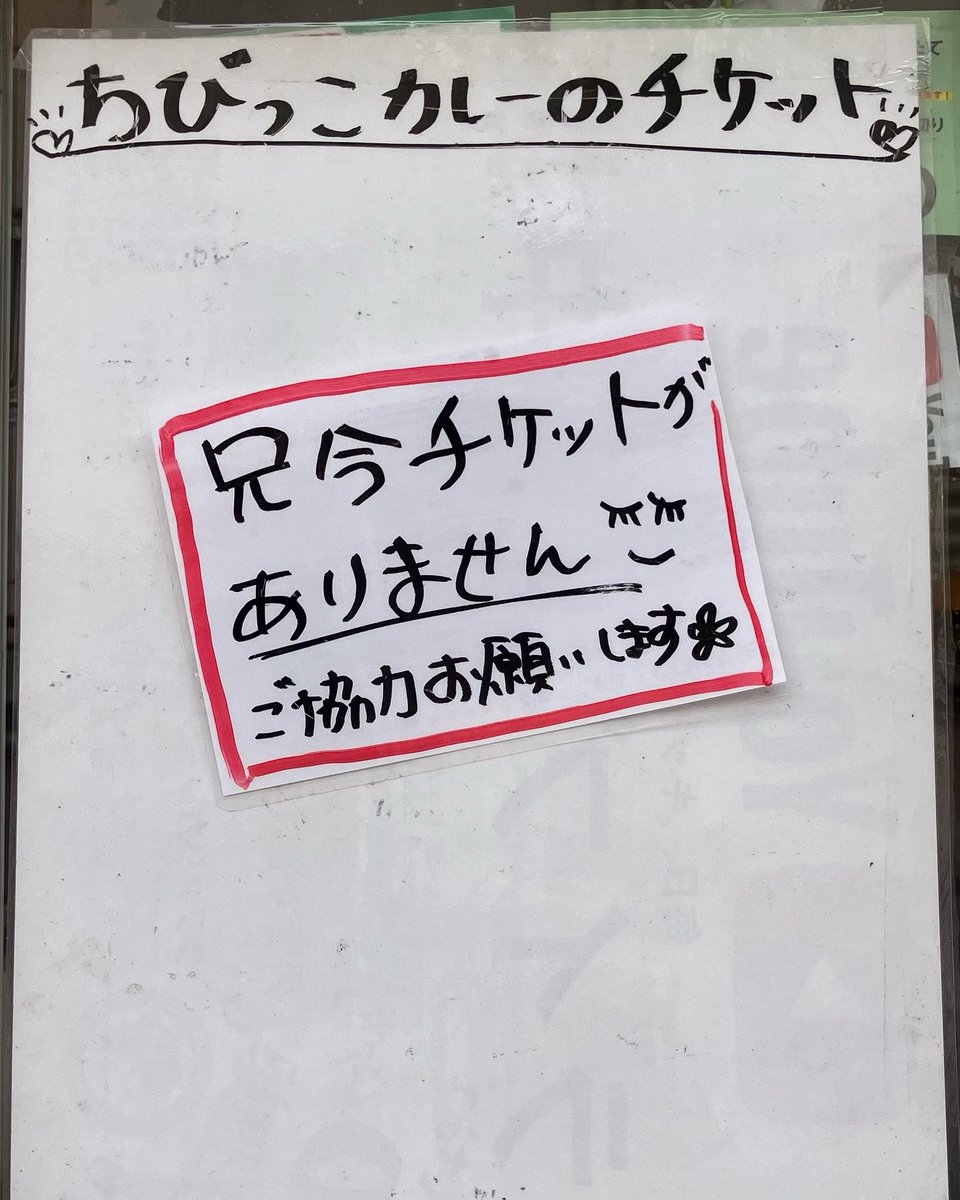 ちびっこカレーのチケット
兄今チケットが
ありません
ご協力お願いします
You